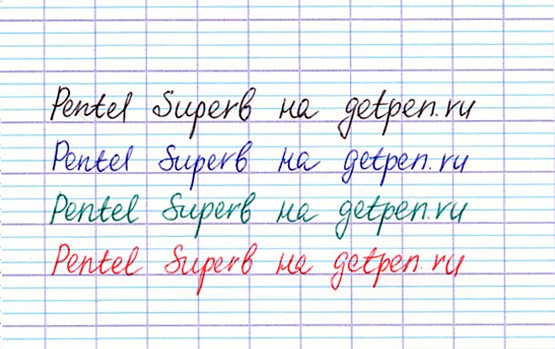 Pentel Superb на getpen.ru
Pentel Superb на getpen.ru
Pentel Superb на getpen.ru
Pentel Superb на getpen.ru